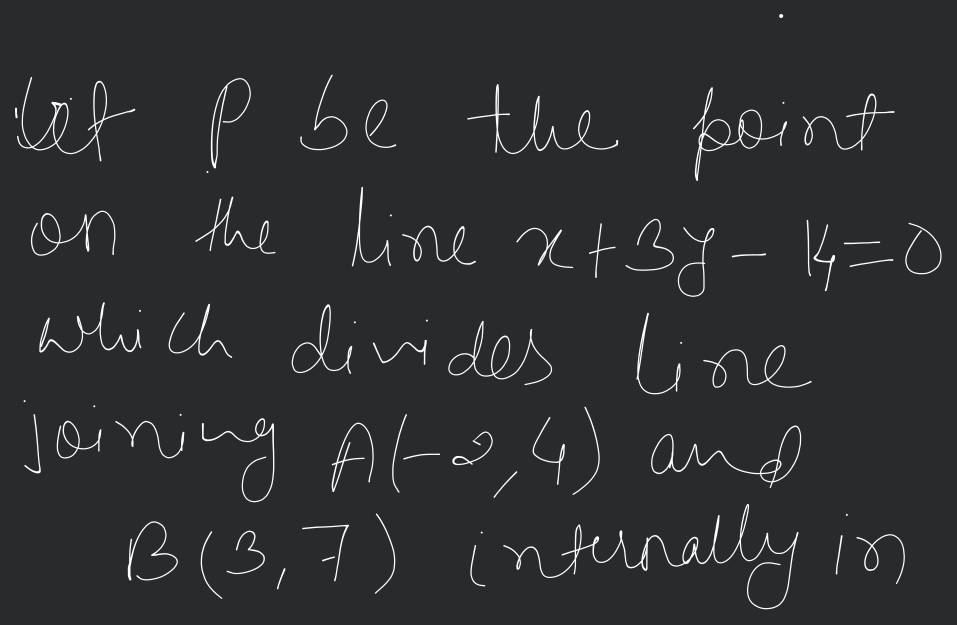 Let P be the point
on the line x+3y-14=0
which divides line
joining A(-2,4) and
B(3,7) internally in